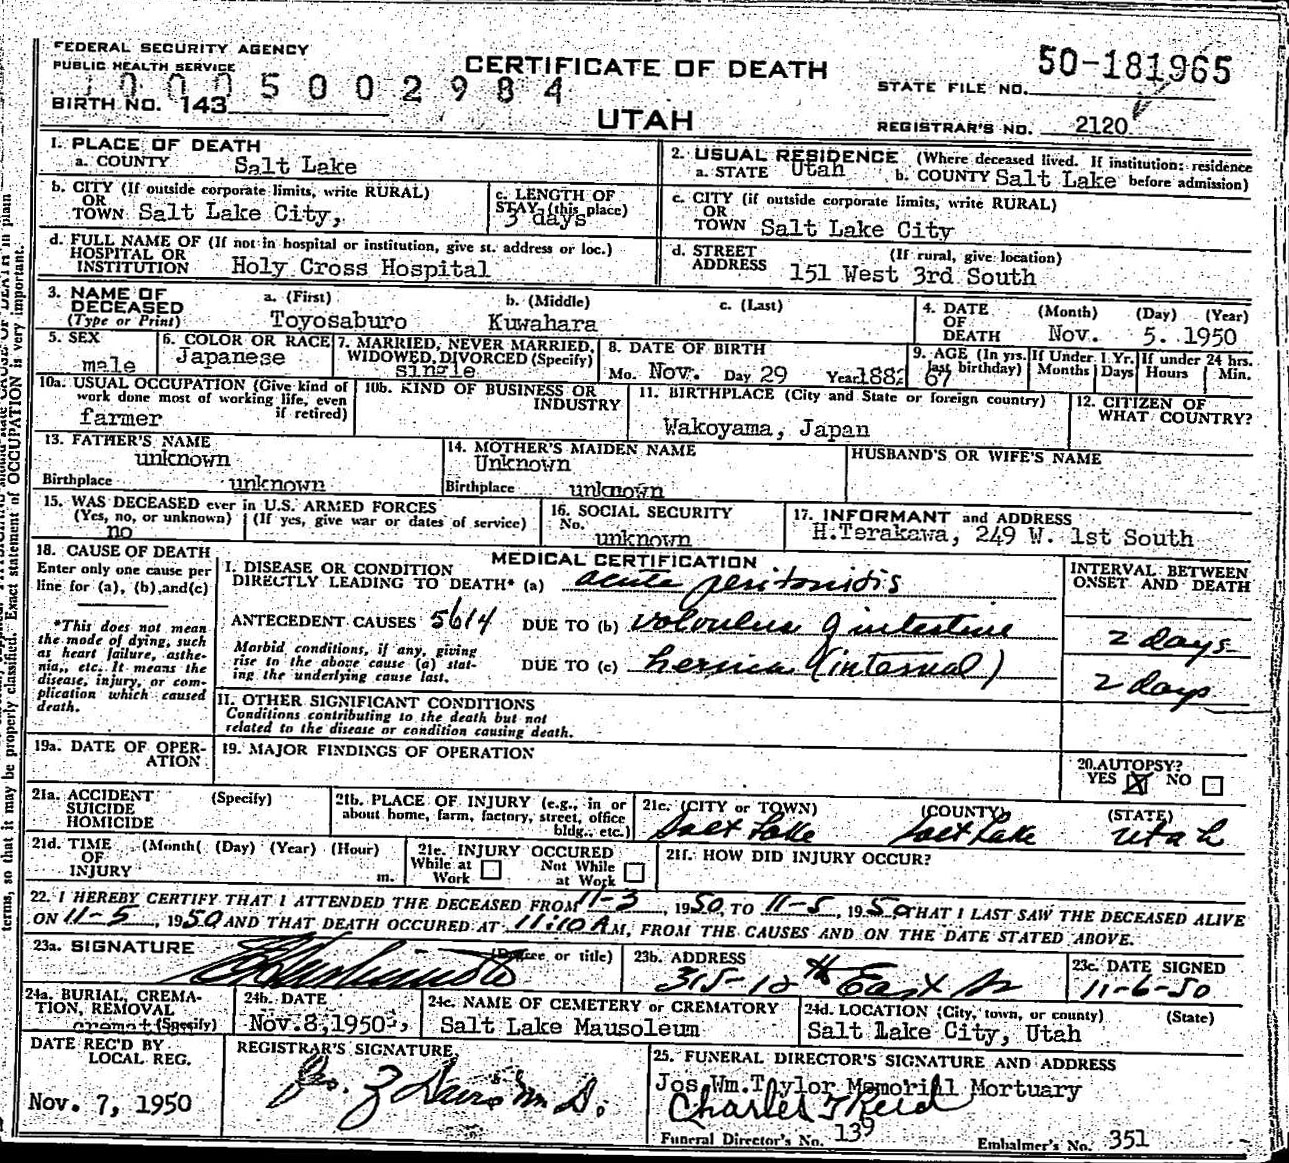 FEDERAL SECURITY AGENCY
PUBLIC HEALTH SERVICE
CERTIFICATE OF DEATH
UTAH
1000 5002984
BIRTH NO. 143
STATE FILE NO. 50-181965
REGISTRAR'S NO. 2120
1. PLACE OF DEATH
a. COUNTY Salt Lake
b. CITY (If outside corporate limits, write RURAL)
OR
TOWN Salt Lake City,
c. LENGTH OF
STAY (this place)
3 days
d. FULL NAME OF (If not in hospital or institution, give st. address or loc.)
HOSPITAL OR
INSTITUTION Holy Cross Hospital
2. USUAL RESIDENCE (Where deceased lived. If institution: residence
a. STATE Utah b. COUNTY Salt Lake before admission)
c. CITY (if outside corporate limits, write RURAL)
OR
TOWN Salt Lake City
d. STREET (If rural, give location)
ADDRESS 151 West 3rd South
3. NAME OF DECEASED
(Type or Print)
a. (First) b. (Middle) c. (Last)
Toyosaburo Kuwahara
4. DATE OF DEATH (Month) (Day) (Year)
Nov. 5. 1950
5. SEX
male
6. COLOR OR RACE
Japanese
7. MARRIED, NEVER MARRIED,
WIDOWED, DIVORCED (Specify)
single
8. DATE OF BIRTH
Mo. Nov. Day 29 Year 1882
9. AGE (In yrs. last birthday)
67
If Under 1 Yr.
Months Days
If under 24 hrs.
Hours Min.
10a. USUAL OCCUPATION (Give kind of
work done most of working life, even
if retired)
farmer
10b. KIND OF BUSINESS OR
INDUSTRY
11. BIRTHPLACE (City and State or foreign country)
Wakoyama, Japan
12. CITIZEN OF
WHAT COUNTRY?
13. FATHER'S NAME
unknown
Birthplace unknown
14. MOTHER'S MAIDEN NAME
Unknown
Birthplace unknown
HUSBAND'S OR WIFE'S NAME
15. WAS DECEASED ever in U.S. ARMED FORCES
(Yes, no, or unknown) (If yes, give war or dates of service)
no
16. SOCIAL SECURITY
No.
unknown
17. INFORMANT and ADDRESS
H.Terakawa, 249 W. 1st South
18. CAUSE OF DEATH
Enter only one cause per
line for (a), (b),and(c)
*This does not mean
the mode of dying, such
as heart failure, asthe-
nia, etc. It means the
disease, injury, or com-
plication which caused
death.
MEDICAL CERTIFICATION
I. DISEASE OR CONDITION
DIRECTLY LEADING TO DEATH* (a) acute peritonitis
ANTECEDENT CAUSES 5614 DUE TO (b) volvulus of intestine
Morbid conditions, if any, giving
rise to the above cause (a) stat-
ing the underlying cause last.
DUE TO (c) hernia (internal)
INTERVAL BETWEEN
ONSET AND DEATH
2 days
2 days
II. OTHER SIGNIFICANT CONDITIONS
Conditions contributing to the death but not
related to the disease or condition causing death.
19a. DATE OF OPER-
ATION
19. MAJOR FINDINGS OF OPERATION
20.AUTOPSY?
YES X NO
21a. ACCIDENT
SUICIDE
HOMICIDE
(Specify)
21b. PLACE OF INJURY (e.g., in or
about home, farm, factory, street, office
bldg., etc.)
21c. (CITY or TOWN) (COUNTY) (STATE)
Salt Lake Salt Lake Utah
21d. TIME (Month( (Day) (Year) (Hour)
OF
INJURY m.
21e. INJURY OCCURED
While at Work Not While at Work
21f. HOW DID INJURY OCCUR?
22. I HEREBY CERTIFY THAT I ATTENDED THE DECEASED FROM 11-3, 1950, TO 11-5, 1950 THAT I LAST SAW THE DECEASED ALIVE
ON 11-5, 1950 AND THAT DEATH OCCURED AT 11:10 A M, FROM THE CAUSES AND ON THE DATE STATED ABOVE.
23a. SIGNATURE (Degree or title)
23b. ADDRESS
315-12th East
23c. DATE SIGNED
11-6-50
24a. BURIAL, CREMA-
TION, REMOVAL
cremat (Specify)
24b. DATE
Nov.8,1950
24c. NAME OF CEMETERY or CREMATORY
Salt Lake Mausoleum
24d. LOCATION (City, town, or county) (State)
Salt Lake City, Utah
DATE REC'D BY
LOCAL REG.
Nov. 7, 1950
REGISTRAR'S SIGNATURE
25. FUNERAL DIRECTOR'S SIGNATURE AND ADDRESS
Jos.Wm.Taylor Memorial Mortuary
Charles T Reid
Funeral Director's No. 139
Embalmer's No. 351
terms, so that it may be properly classified. Exact statement of OCCUPATION is very important.